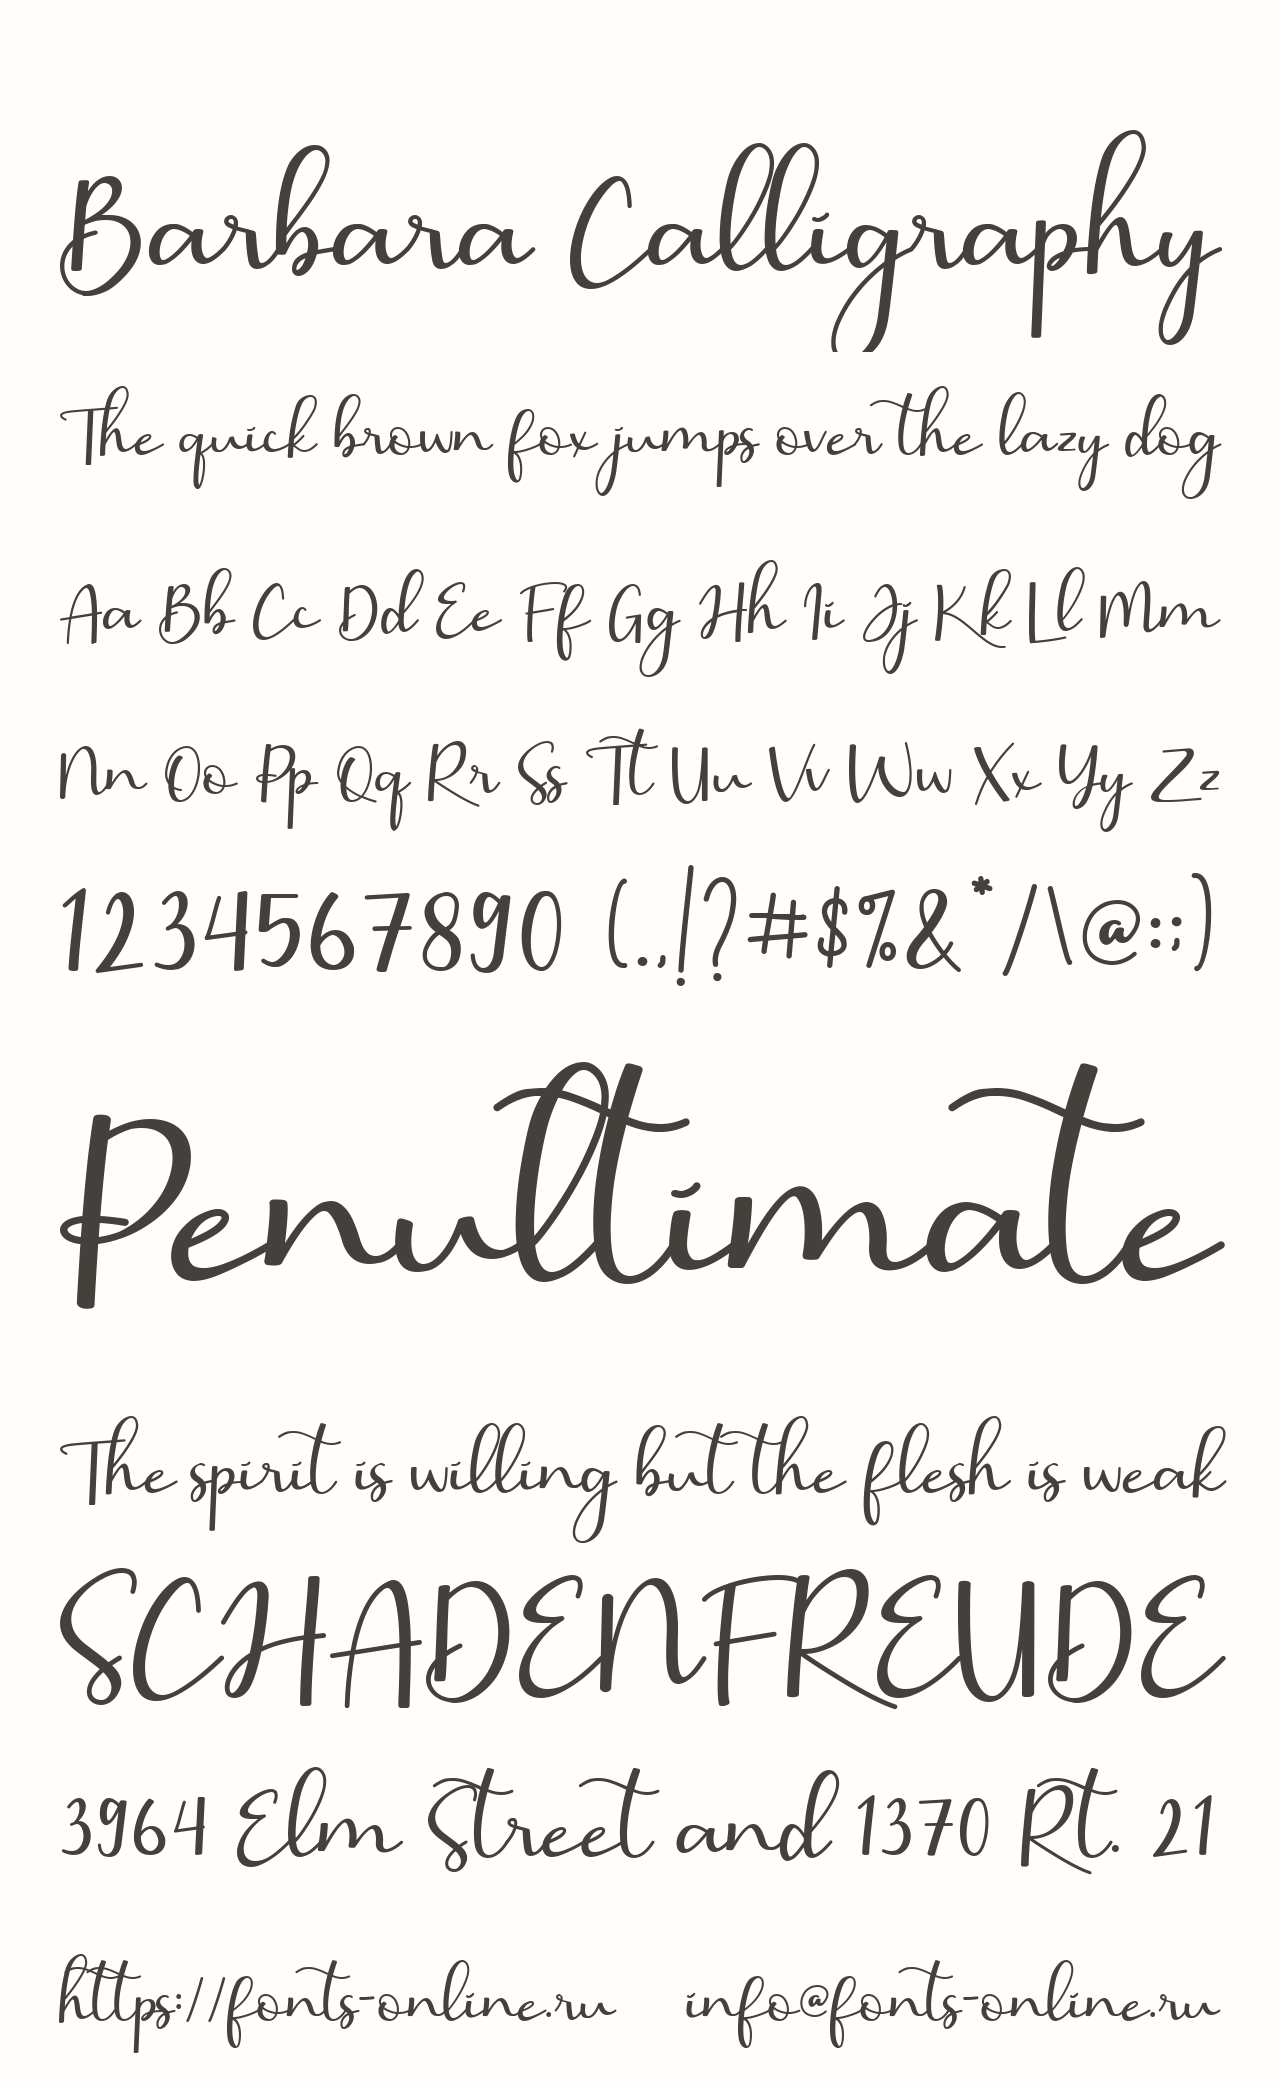 Barbara Calligraphy
The quick brown fox jumps over the lazy dog
Aa Bb Cc Dd Ee Ff Gg Hh Ii Jj Kk Ll Mm
Nn Oo Pp Qq Rr Ss Tt Uu Vv Ww Xx Yy Zz
1234567890 (.,!?#$%&*/\@:;)
Penultimate
The spirit is willing but the flesh is weak
SCHADENFREUDE
3964 Elm Street and 1370 Rt. 21
https://fonts-online.ru info@fonts-online.ru